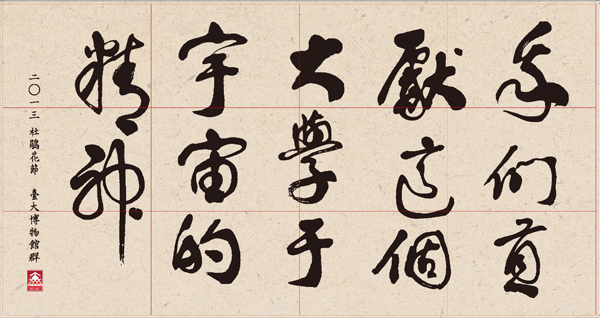 我們貢
獻這個
大學于
宇宙的
精神
二〇一三 杜鵑花節 臺大博物館群